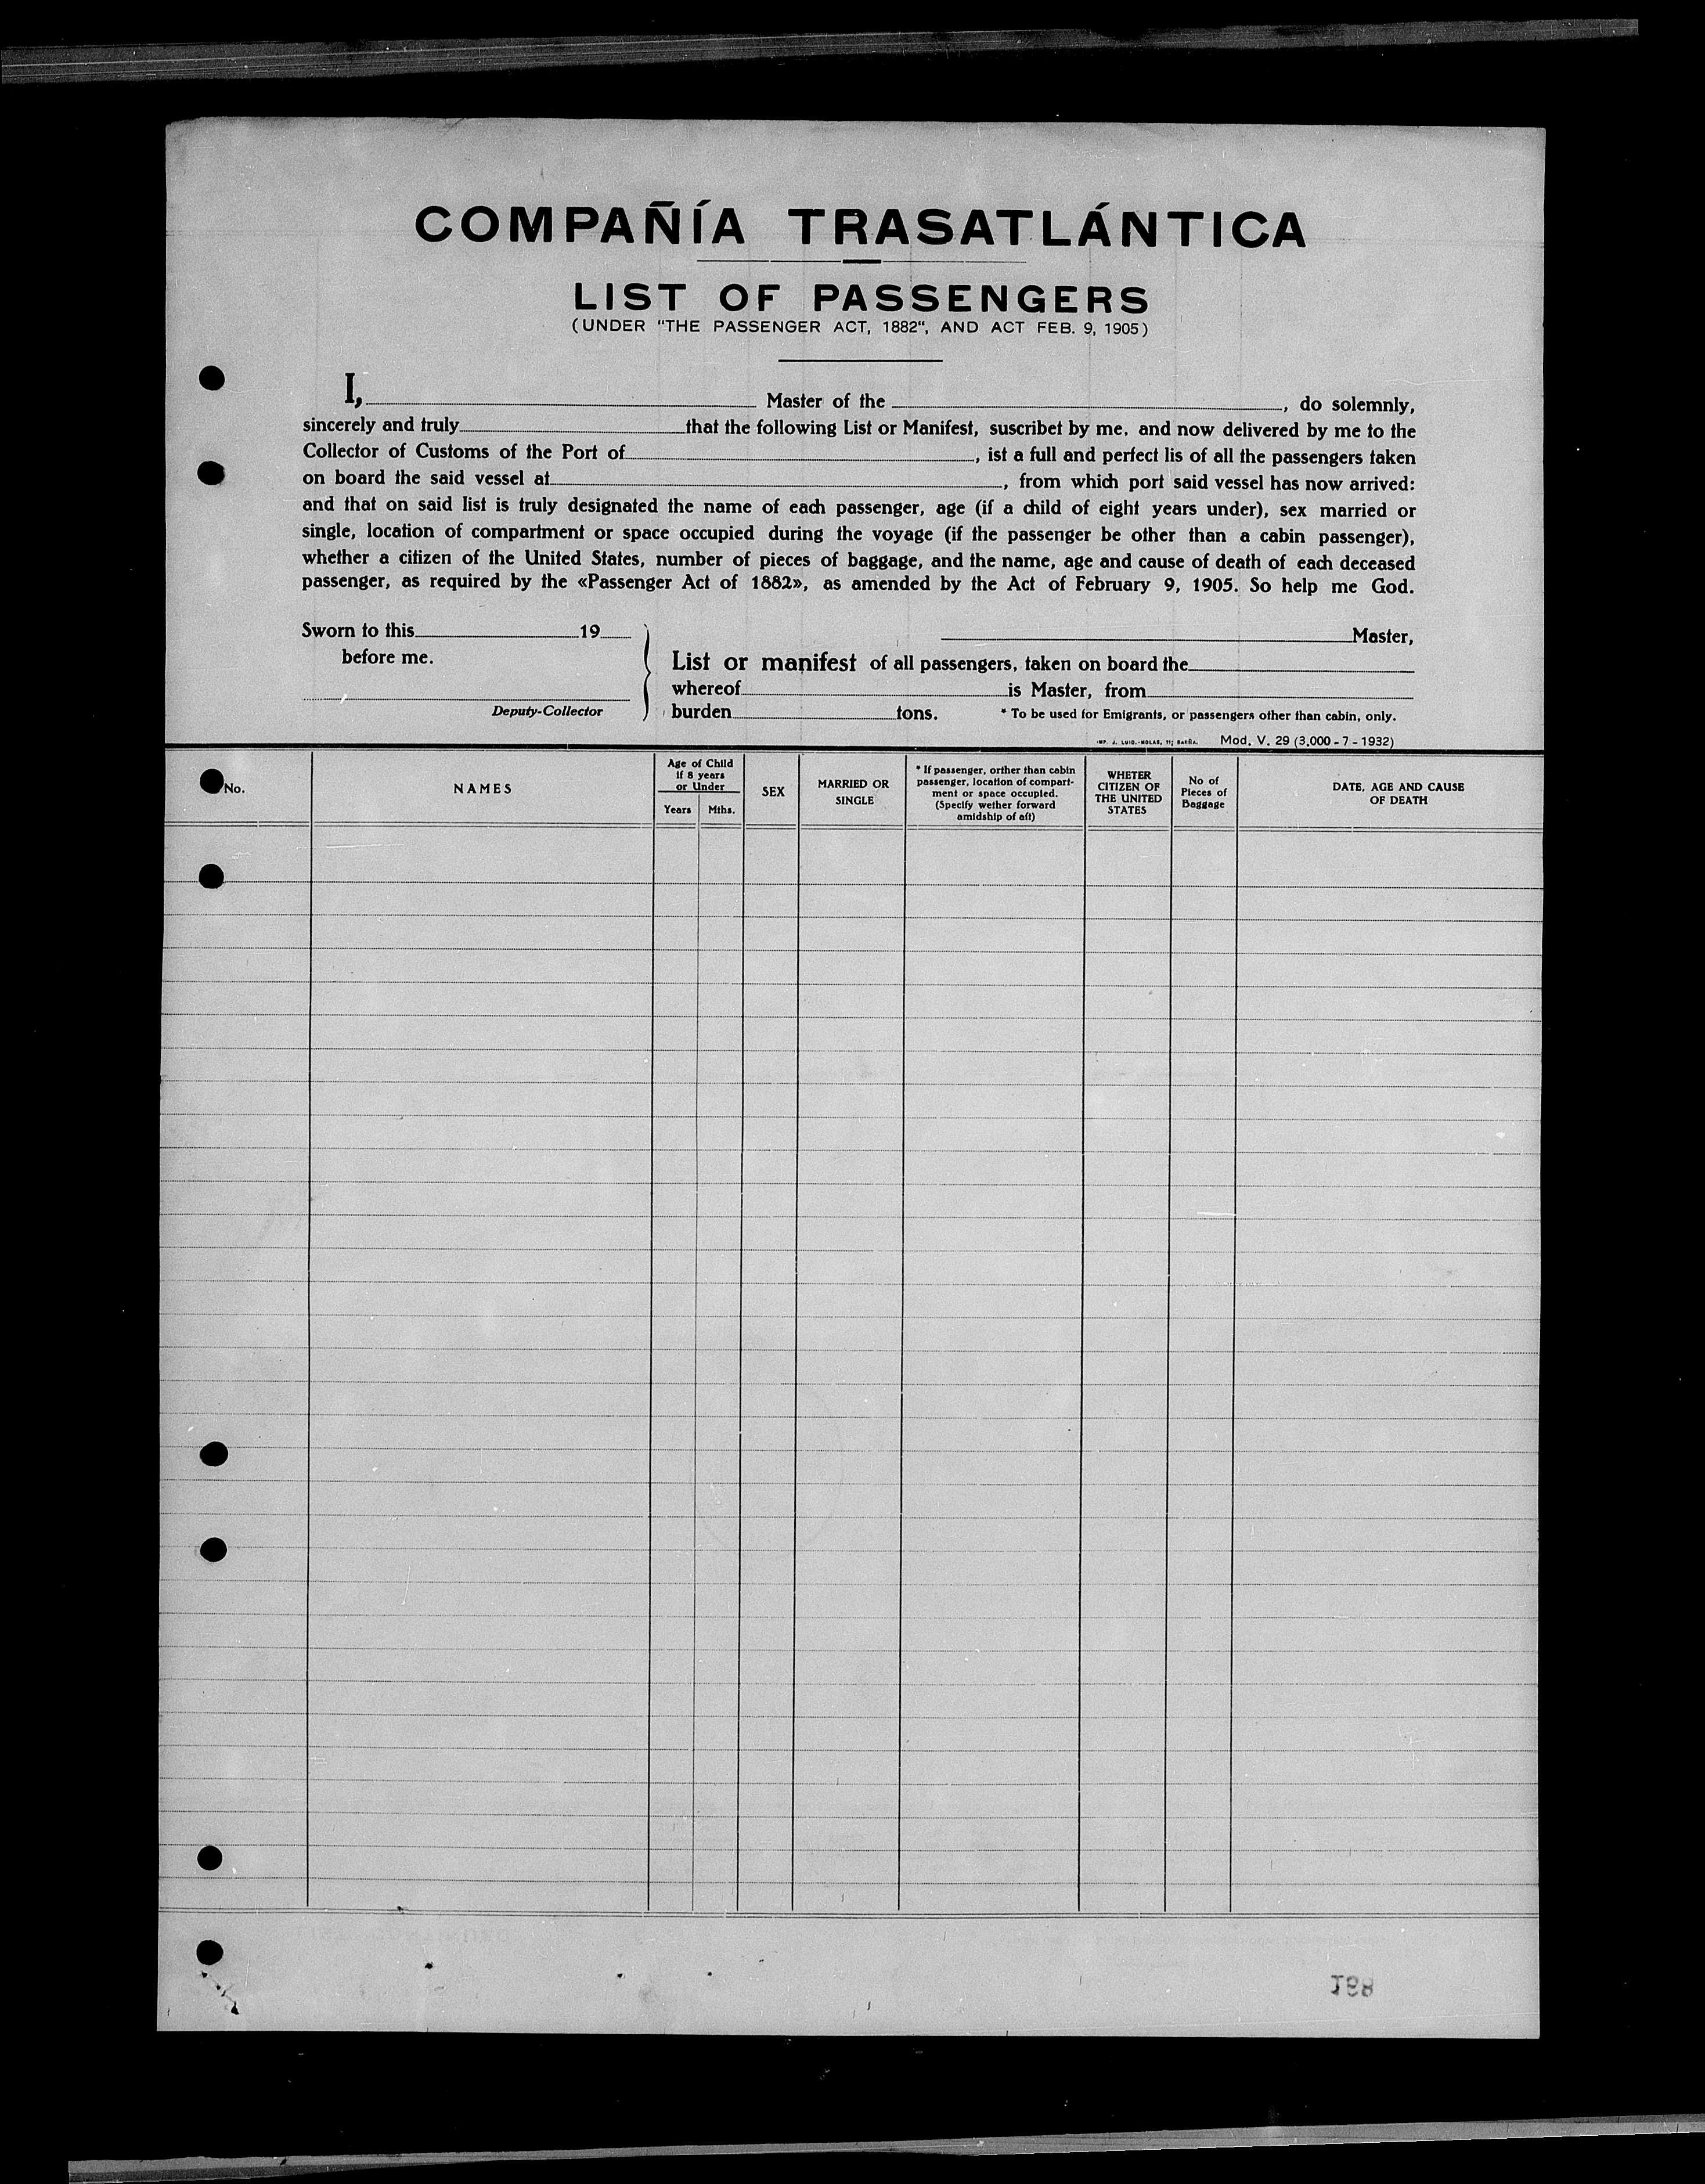 COMPAÑÍA TRASATLÁNTICA
LIST OF PASSENGERS
(UNDER "THE PASSENGER ACT, 1882", AND ACT FEB. 9, 1905)
I, Master of the , do solemnly,
sincerely and truly that the following List or Manifest, suscribet by me, and now delivered by me to the
Collector of Customs of the Port of , ist a full and perfect lis of all the passengers taken
on board the said vessel at , from which port said vessel has now arrived:
and that on said list is truly designated the name of each passenger, age (if a child of eight years under), sex married or
single, location of compartment or space occupied during the voyage (if the passenger be other than a cabin passenger),
whether a citizen of the United States, number of pieces of baggage, and the name, age and cause of death of each deceased
passenger, as required by the «Passenger Act of 1882», as amended by the Act of February 9, 1905. So help me God.
Sworn to this 19
before me.
Deputy-Collector
Master,
List or manifest of all passengers, taken on board the
whereof is Master, from
burden tons. * To be used for Emigrants, or passengers other than cabin, only.
Mod. V. 29 (3,000 - 7 - 1932)
No.
NAMES
Age of Child
if 8 years
or Under
Years Mths.
SEX
MARRIED OR
SINGLE
* If passenger, orther than cabin
passenger, location of compart-
ment or space occupied.
(Specify wether forward
amidship of aft)
WHETER
CITIZEN OF
THE UNITED
STATES
No of
Pieces of
Baggage
DATE, AGE AND CAUSE
OF DEATH